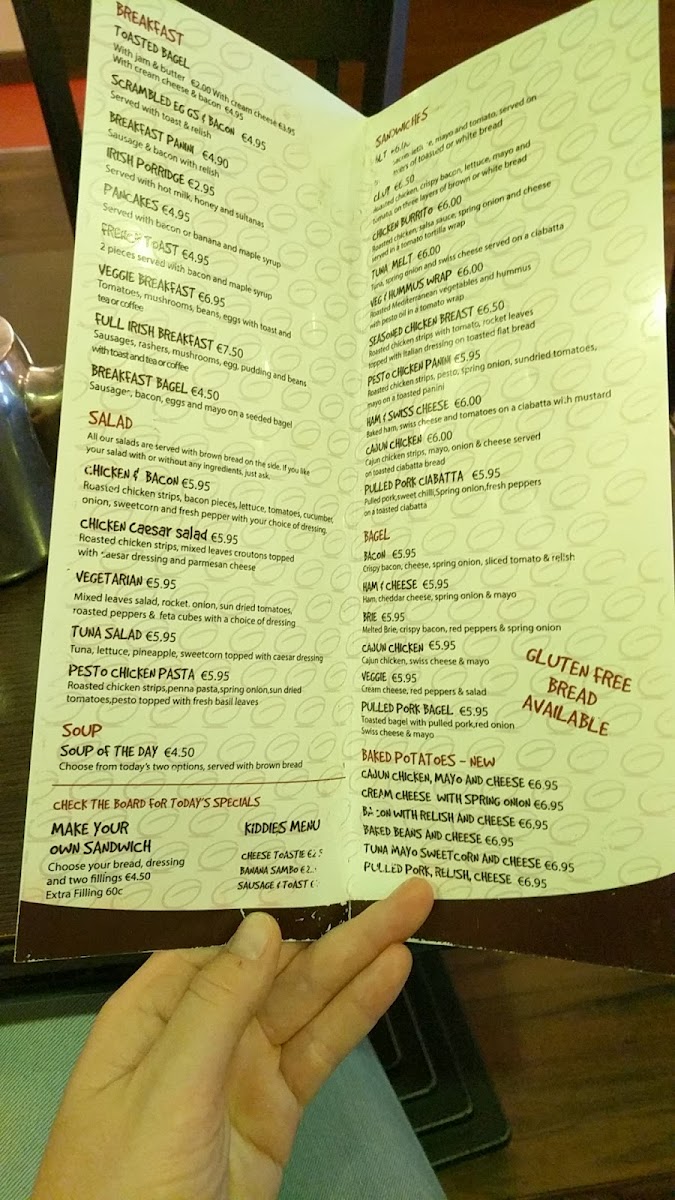 BREAKFAST
TOASTED BAGEL
With jam & butter €2.00 With cream cheese €3.95
With cream cheese & bacon €4.95
SCRAMBLED EGGS & BACON €4.95
Served with toast & relish
BREAKFAST PANINI €4.90
Sausage & bacon with relish
IRISH PORRIDGE €2.95
Served with hot milk, honey and sultanas
PANCAKES €4.95
Served with bacon or banana and maple syrup
FRENCH TOAST €4.95
2 pieces served with bacon and maple syrup
VEGGIE BREAKFAST €6.95
Tomatoes, mushrooms, beans, eggs with toast and
tea or coffee
FULL IRISH BREAKFAST €7.50
Sausages, rashers, mushrooms, egg, pudding and beans
with toast and tea or coffee
BREAKFAST BAGEL €4.50
Sausages, bacon, eggs and mayo on a seeded bagel
SALAD
All our salads are served with brown bread on the side. If you like
your salad with or without any ingredients, just ask.
CHICKEN & BACON €5.95
Roasted chicken strips, bacon pieces, lettuce, tomatoes, cucumber,
onion, sweetcorn and fresh pepper with your choice of dressing.
CHICKEN Caesar salad €5.95
Roasted chicken strips, mixed leaves croutons topped
with caesar dressing and parmesan cheese
VEGETARIAN €5.95
Mixed leaves salad, rocket. onion, sun dried tomatoes,
roasted peppers & feta cubes with a choice of dressing
TUNA SALAD €5.95
Tuna, lettuce, pineapple, sweetcorn topped with caesar dressing
PESTO CHICKEN PASTA €5.95
Roasted chicken strips,penna pasta,spring onion,sun dried
tomatoes,pesto topped with fresh basil leaves
SOUP
SOUP OF THE DAY €4.50
Choose from today's two options, served with brown bread
CHECK THE BOARD FOR TODAY'S SPECIALS
MAKE YOUR
OWN SANDWICH
Choose your bread, dressing
and two fillings €4.50
Extra Filling 60c
KIDDIES MENU
CHEESE TOASTIE
BANANA SAMBO
SAUSAGE & TOAST
SANDWICHES
mayo and tomato, served on
layers of toasted or white bread
CLUB €6.50
Roasted chicken, crispy bacon, lettuce, mayo and
tomato on three layers of brown or white bread
CHICKEN BURRITO €6.00
Roasted chicken, salsa sauce, spring onion and cheese
served in a tomato tortilla wrap
TUNA MELT €6.00
Tuna, spring onion and swiss cheese served on a ciabatta
VEG & HUMMUS WRAP €6.00
Roasted Mediterranean vegetables and hummus
with pesto oil in a tomato wrap
SEASONED CHICKEN BREAST €6.50
Roasted chicken strips with tomato, rocket leaves
topped with Italian dressing on toasted flat bread
PESTO CHICKEN PANINI €5.95
Roasted chicken strips, pesto, spring onion, sundried tomatoes,
mayo on a toasted panini
HAM & SWISS CHEESE €6.00
Baked ham, swiss cheese and tomatoes on a ciabatta with mustard
CAJUN CHICKEN €6.00
Cajun chicken strips, mayo, onion & cheese served
on toasted ciabatta bread
PULLED PORK CIABATTA €5.95
Pulled pork,sweet chilli,Spring onion,fresh peppers
on a toasted ciabatta
BAGEL
BACON €5.95
Crispy bacon, cheese, spring onion, sliced tomato & relish
HAM & CHEESE €5.95
Ham, cheddar cheese, spring onion & mayo
BRIE €5.95
Melted Brie, crispy bacon, red peppers & spring onion
CAJUN CHICKEN €5.95
Cajun chicken, swiss cheese & mayo
VEGGIE €5.95
Cream cheese, red peppers & salad
PULLED PORK BAGEL €5.95
Toasted bagel with pulled pork,red onion
Swiss cheese & mayo
GLUTEN FREE
BREAD
AVAILABLE
BAKED POTATOES - NEW
CAJUN CHICKEN, MAYO AND CHEESE €6.95
CREAM CHEESE WITH SPRING ONION €6.95
BACON WITH RELISH AND CHEESE €6.95
BAKED BEANS AND CHEESE €6.95
TUNA MAYO SWEETCORN AND CHEESE €6.95
PULLED PORK, RELISH, CHEESE €6.95